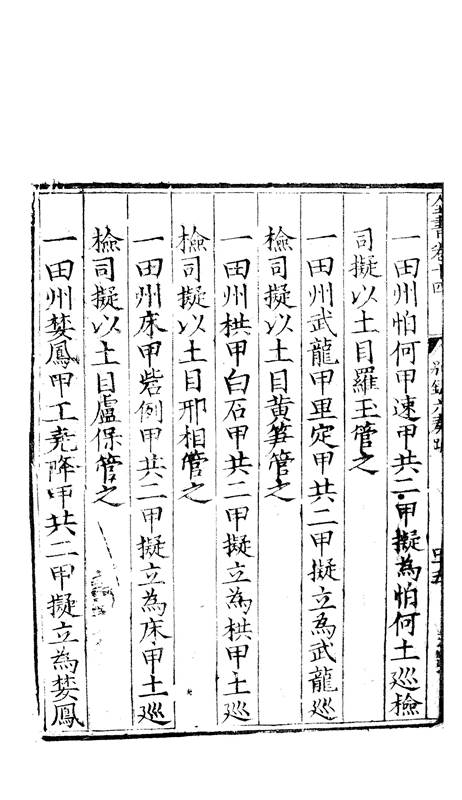 全書卷十四
別錄六奏疏
一田州怕何甲速甲共二甲擬為怕何土巡檢
司擬以土目羅玉管之
一田州武龍甲里定甲共二甲擬立為武龍巡
檢司擬以土目黃笋管之
一田州栱甲白石甲共二甲擬立為栱甲土巡
檢司擬以土目邢相管之
一田州床甲砦例甲共二甲擬立為床甲土巡
檢司擬以土目盧保管之
一田州婪鳳甲工堯降甲共二甲擬立為婪鳳